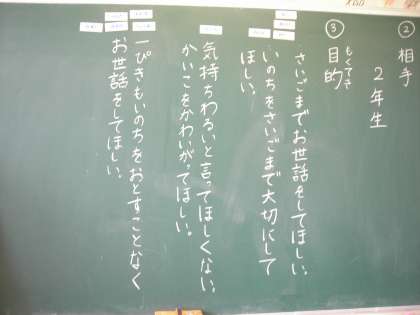 ② 相手
2年生
③ 目的
もくてき
さいごまでお世話をしてほしい。
いのちをさいごまで大切にして
ほしい。
気持ちわるいと言ってほしくない。
かいこをかわいがってほしい。
一ぴきもいのちをおとすことなく
お世話をしてほしい。